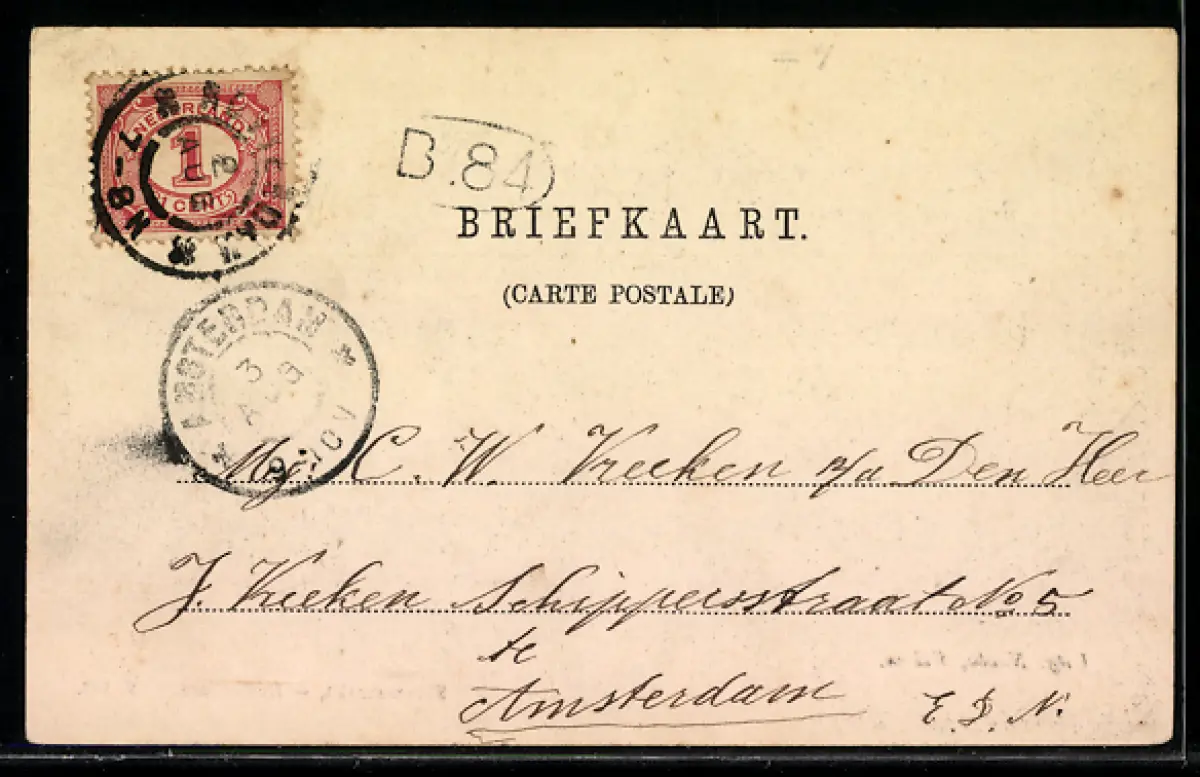 NEDERLAND
1
1 CENT
7-8N
2
AUG
B.84
BRIEFKAART.
(CARTE POSTALE)
AMSTERDAM
3
AUG
Mej. C. W. Vreeken p/a Den Heer
J. Vreeken Schippersstraat No 5
te
Amsterdam